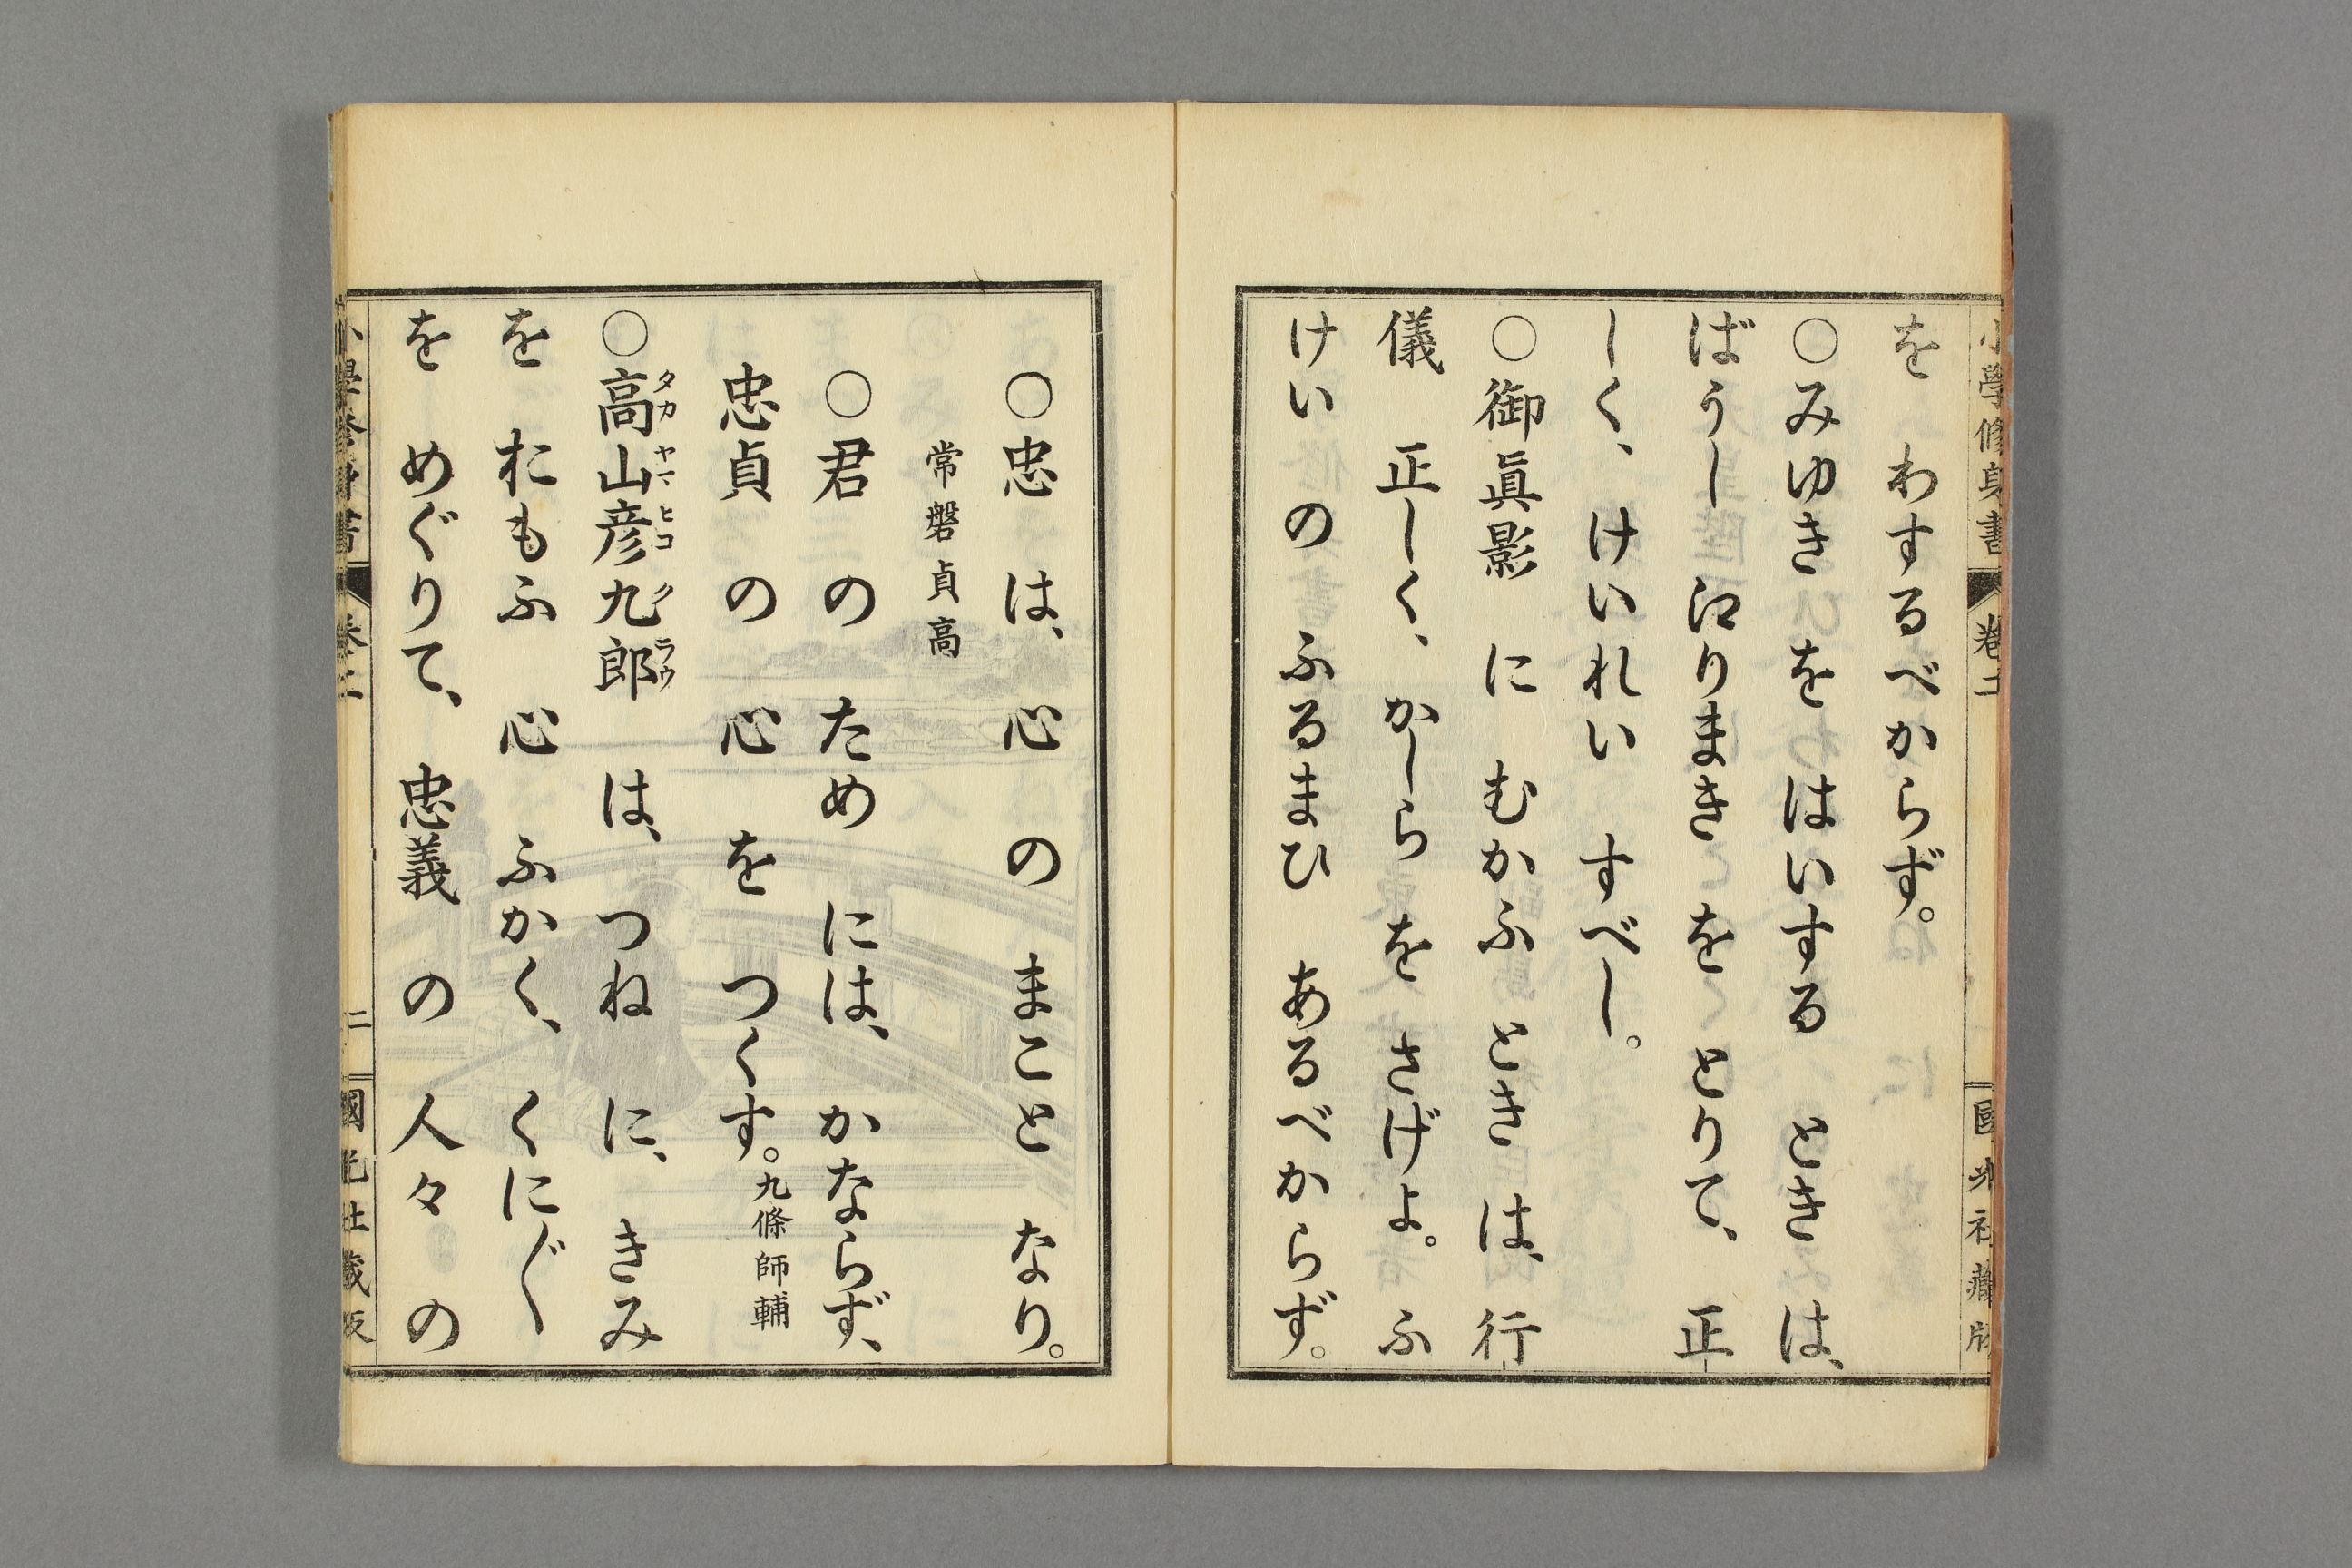 小學修身書 卷二 國光社藏版
を わするべからず。
○みゆき を はいする とき は、
ばうし ゑりまき を とりて、 正
しく、 けいれい すべし。
○御眞影 に むかふ とき は、 行
儀 正しく、 かしら を さげよ。 ふ
けい の ふるまひ ある べからず。
○忠 は、 心 の まこと なり。
常磐貞高
○君 の ため には、 かならず、
忠貞 の 心 を つくす。 九條師輔
○高山彦九郎 は、 つね に、 きみ
タカヤマヒコクラウ
を おもふ 心 ふかく、 くに〴〵
を めぐりて、 忠義 の 人々 の
小學修身書 卷二 二 國光社藏版